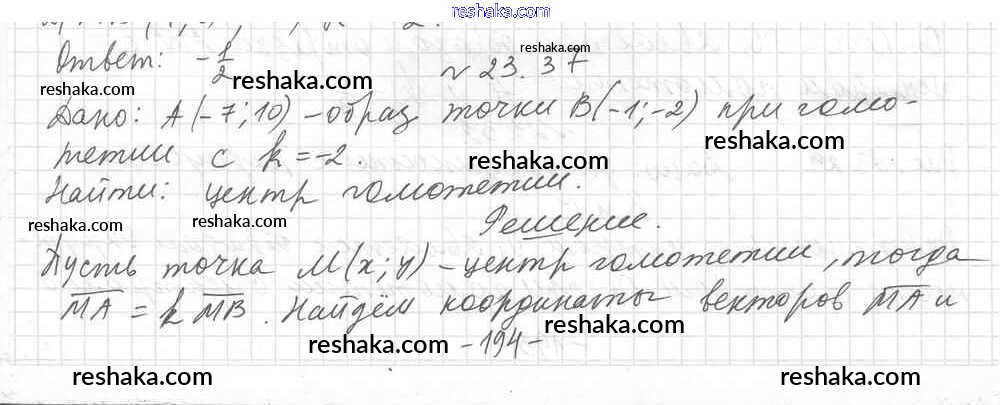 reshaka.com
Ответ: -1/2 № 23.37
reshaka.com
reshaka.com
reshaka.com
Дано: A(-7;10) – образ точки B(-1;-2) при гомо-
reshaka.com
тетии с k = -2.
reshaka.com
Найти: центр гомотетии.
reshaka.com reshaka.com
Решение.
Пусть точка M(x; y) – центр гомотетии, тогда
reshaka.com
MA = k MB. Найдём координаты векторов MA и
reshaka.com
reshaka.com
- 194 -
reshaka.com reshaka.com